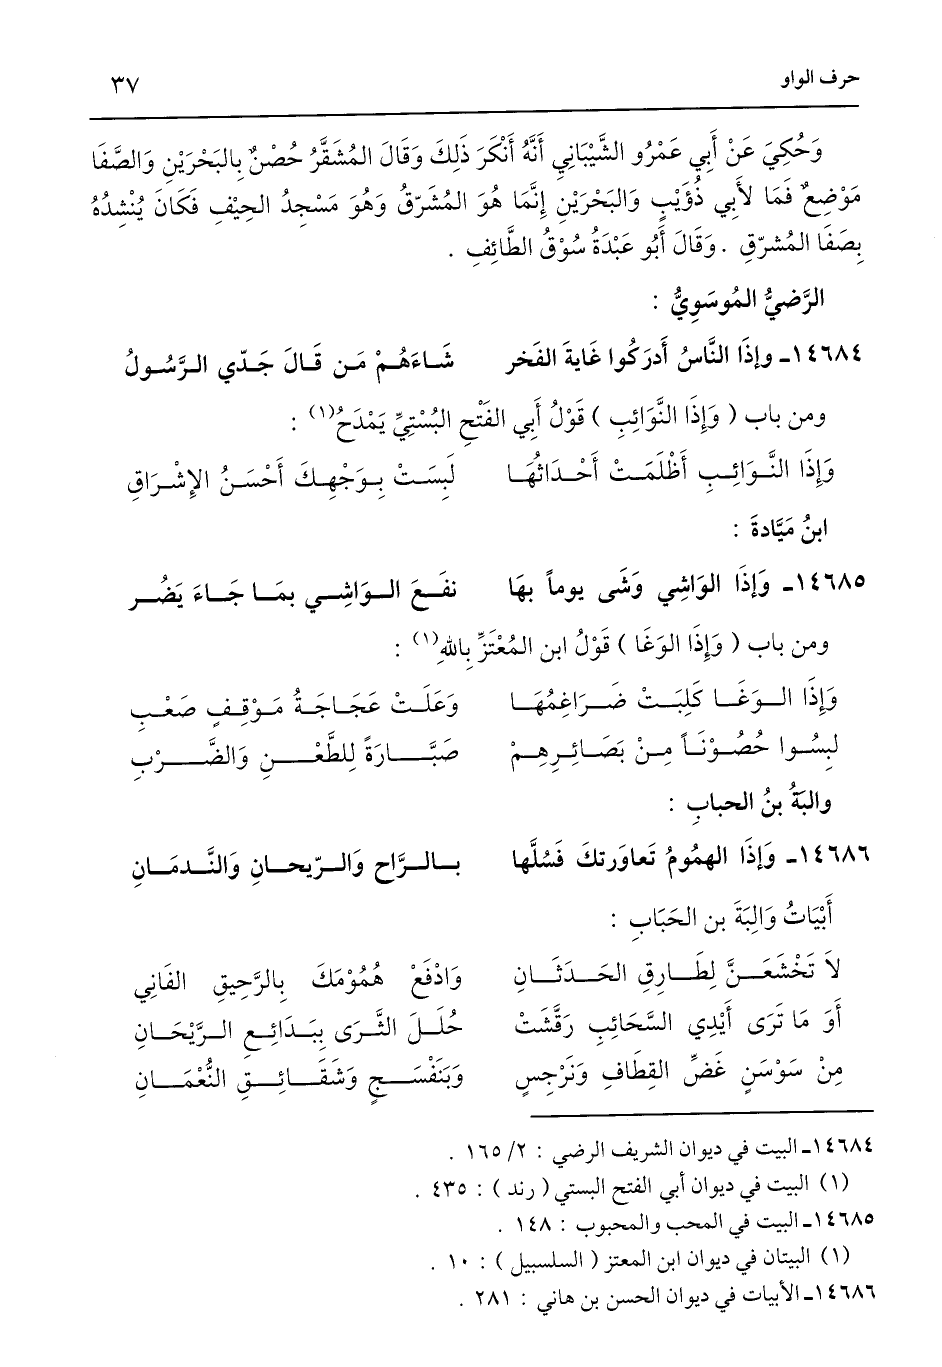 حرف الواو ٣٧
وَحُكِيَ عَنْ أَبِي عَمْرُو الشَّيْبَانِي أَنَّهُ أَنْكَرَ ذَلِكَ وَقَالَ المُشَقَّرُ حُصْنٌ بِالبَحْرَيْنِ وَالصَّفَا
مَوْضِعٌ فَمَا لأَبِي ذُؤَيْبٍ وَالبَحْرَيْنِ إِنَّمَا هُوَ المُشَرّقُ وَهُوَ مَسْجِدُ الحِيْفِ فَكَانَ يُنْشِدُهُ
بِصَفَا المُشرّقِ . وَقَالَ أَبُو عَبْدَةُ سُوْقُ الطَّائِفِ .
الرَّضيُّ المُوسَوِيُّ :
١٤٦٨٤ـ وإذَا النَّاسُ أَدرَكُوا غَايةَ الفَخر شَاءَهُمْ مَن قَالَ جَدّي الرَّسُولُ
ومن باب ( وَإِذَا النَّوَائِبِ ) قَوْلُ أَبِي الفَتْحِ البُسْتِيِّ يَمْدَحُ(١) :
وَإِذَا النَّوَائِبِ أَظْلَمَتْ أَحْدَاثُهَا لَبِسَتْ بِوَجْهِكَ أَحْسَنُ الإِشْرَاقِ
ابنُ مَيَّادةَ :
١٤٦٨٥ـ وَإِذَا الوَاشِي وَشَى يوماً بهَا نفَعَ الوَاشِي بمَا جَاءَ يَضُر
ومن باب ( وَإِذَا الوَغَا ) قَوْلُ ابن المُعْتَزِّ بِاللهِ(١) :
وَإِذَا الوَغَا كَلِبَتْ ضَرَاغِمُهَا وَعَلَتْ عَجَاجَةُ مَوْقِفٍ صَعْبِ
لَبِسُوا حُصُوْنَاً مِنْ بَصَائِرِهِمْ صَبَّارَةً لِلطَّعْنِ وَالضَّرْبِ
والبَةُ بنُ الحبابِ :
١٤٦٨٦ـ وَإِذَا الهمُومُ تَعاوَرتكَ فَسُلَّها بالرَّاحِ وَالرّيحانِ وَالنَّدمَانِ
أَبْيَاتُ وَالِبَةَ بن الحَبَابِ :
لاَ تَخْشَعَنَّ لِطَارِقِ الحَدَثَانِ وَادْفَعْ هُمُوْمَكَ بِالرَّحِيقِ الفَانِي
أَوَ مَا تَرَى أَيْدِي السَّحَائِبِ رَقَّشَتْ حُلَلَ الثَّرَى بِبَدَائِعِ الرَّيْحَانِ
مِنْ سَوْسَنٍ غَضِّ القِطَافِ وَنَرْجِسٍ وَبَنَفْسَجٍ وَشَقَائِقِ النُّعْمَانِ
١٤٦٨٤ـ البيت في ديوان الشريف الرضي : ٢/ ١٦٥ .
(١) البيت في ديوان أبي الفتح البستي ( رند ) : ٤٣٥ .
١٤٦٨٥ـ البيت في المحب والمحبوب : ١٤٨ .
(١) البيتان في ديوان ابن المعتز ( السلسبيل ) : ١٠ .
١٤٦٨٦ـ الأبيات في ديوان الحسن بن هاني : ٢٨١ .